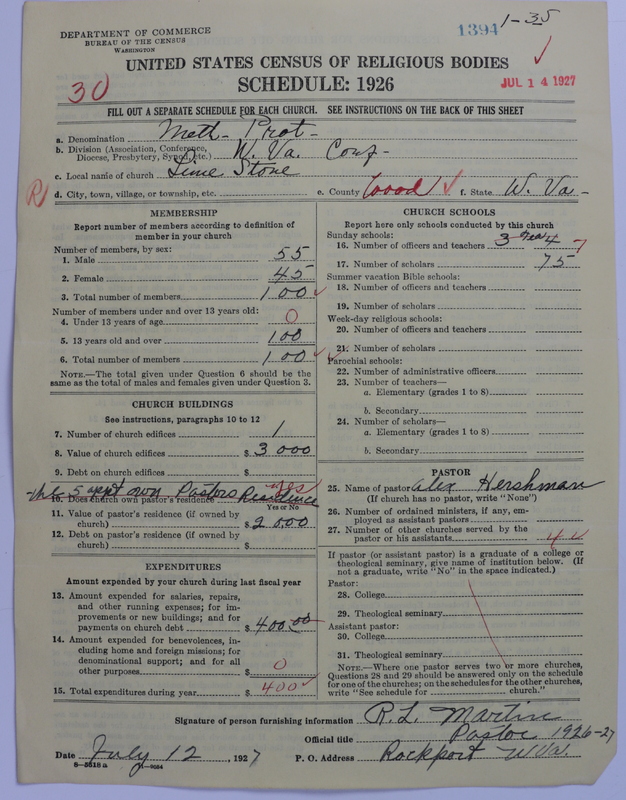 DEPARTMENT OF COMMERCE
BUREAU OF THE CENSUS
WASHINGTON
1394
1-35
UNITED STATES CENSUS OF RELIGIOUS BODIES
SCHEDULE: 1926
30
JUL 14 1927
FILL OUT A SEPARATE SCHEDULE FOR EACH CHURCH. SEE INSTRUCTIONS ON THE BACK OF THIS SHEET
a. Denomination Meth- Prot-
b. Division (Association, Conference, Diocese, Presbytery, Synod, etc.) W. Va. Conf-
c. Local name of church Lime Stone
R
d. City, town, village, or township, etc. e. County Wood f. State W. Va-
MEMBERSHIP
Report number of members according to definition of
member in your church
Number of members, by sex:
1. Male 55
2. Female 45
3. Total number of members 100
Number of members under and over 13 years old:
4. Under 13 years of age 0
5. 13 years old and over 100
6. Total number of members 100
NOTE.—The total given under Question 6 should be the
same as the total of males and females given under Question 3.
CHURCH BUILDINGS
See instructions, paragraphs 10 to 12
7. Number of church edifices 1
8. Value of church edifices $ 3000
9. Debt on church edifices $
the 5 appt own Pastors Residence
yes
10. Does church own pastor's residence
Yes or No
11. Value of pastor's residence (if owned by
church) $ 2000
12. Debt on pastor's residence (if owned by
church) $
EXPENDITURES
Amount expended by your church during last fiscal year
13. Amount expended for salaries, repairs,
and other running expenses; for im-
provements or new buildings; and for
payments on church debt $ 400.00
14. Amount expended for benevolences, in-
cluding home and foreign missions; for
denominational support; and for all
other purposes $ 0
15. Total expenditures during year $ 400
CHURCH SCHOOLS
Report here only schools conducted by this church
Sunday schools:
16. Number of officers and teachers 3 4 7
17. Number of scholars 75
Summer vacation Bible schools:
18. Number of officers and teachers
19. Number of scholars
Week-day religious schools:
20. Number of officers and teachers
21. Number of scholars
Parochial schools:
22. Number of administrative officers
23. Number of teachers—
a. Elementary (grades 1 to 8)
b. Secondary
24. Number of scholars—
a. Elementary (grades 1 to 8)
b. Secondary
PASTOR
25. Name of pastor Alex Hershman
(If church has no pastor, write "None")
26. Number of ordained ministers, if any, em-
ployed as assistant pastors
27. Number of other churches served by the
pastor or his assistants 4
If pastor (or assistant pastor) is a graduate of a college or
theological seminary, give name of institution below. (If
not a graduate, write "No" in the space indicated.)
Pastor:
28. College
29. Theological seminary
Assistant pastor:
30. College
31. Theological seminary
NOTE.—Where one pastor serves two or more churches,
Questions 28 and 29 should be answered only on the schedule
for one of the churches; on the schedules for the other churches,
write "See schedule for church."
Signature of person furnishing information R. L. Martin
Official title Pastor 1926-27
Date July 12, 1927 P. O. Address Rockport W Va.
8-5518 a